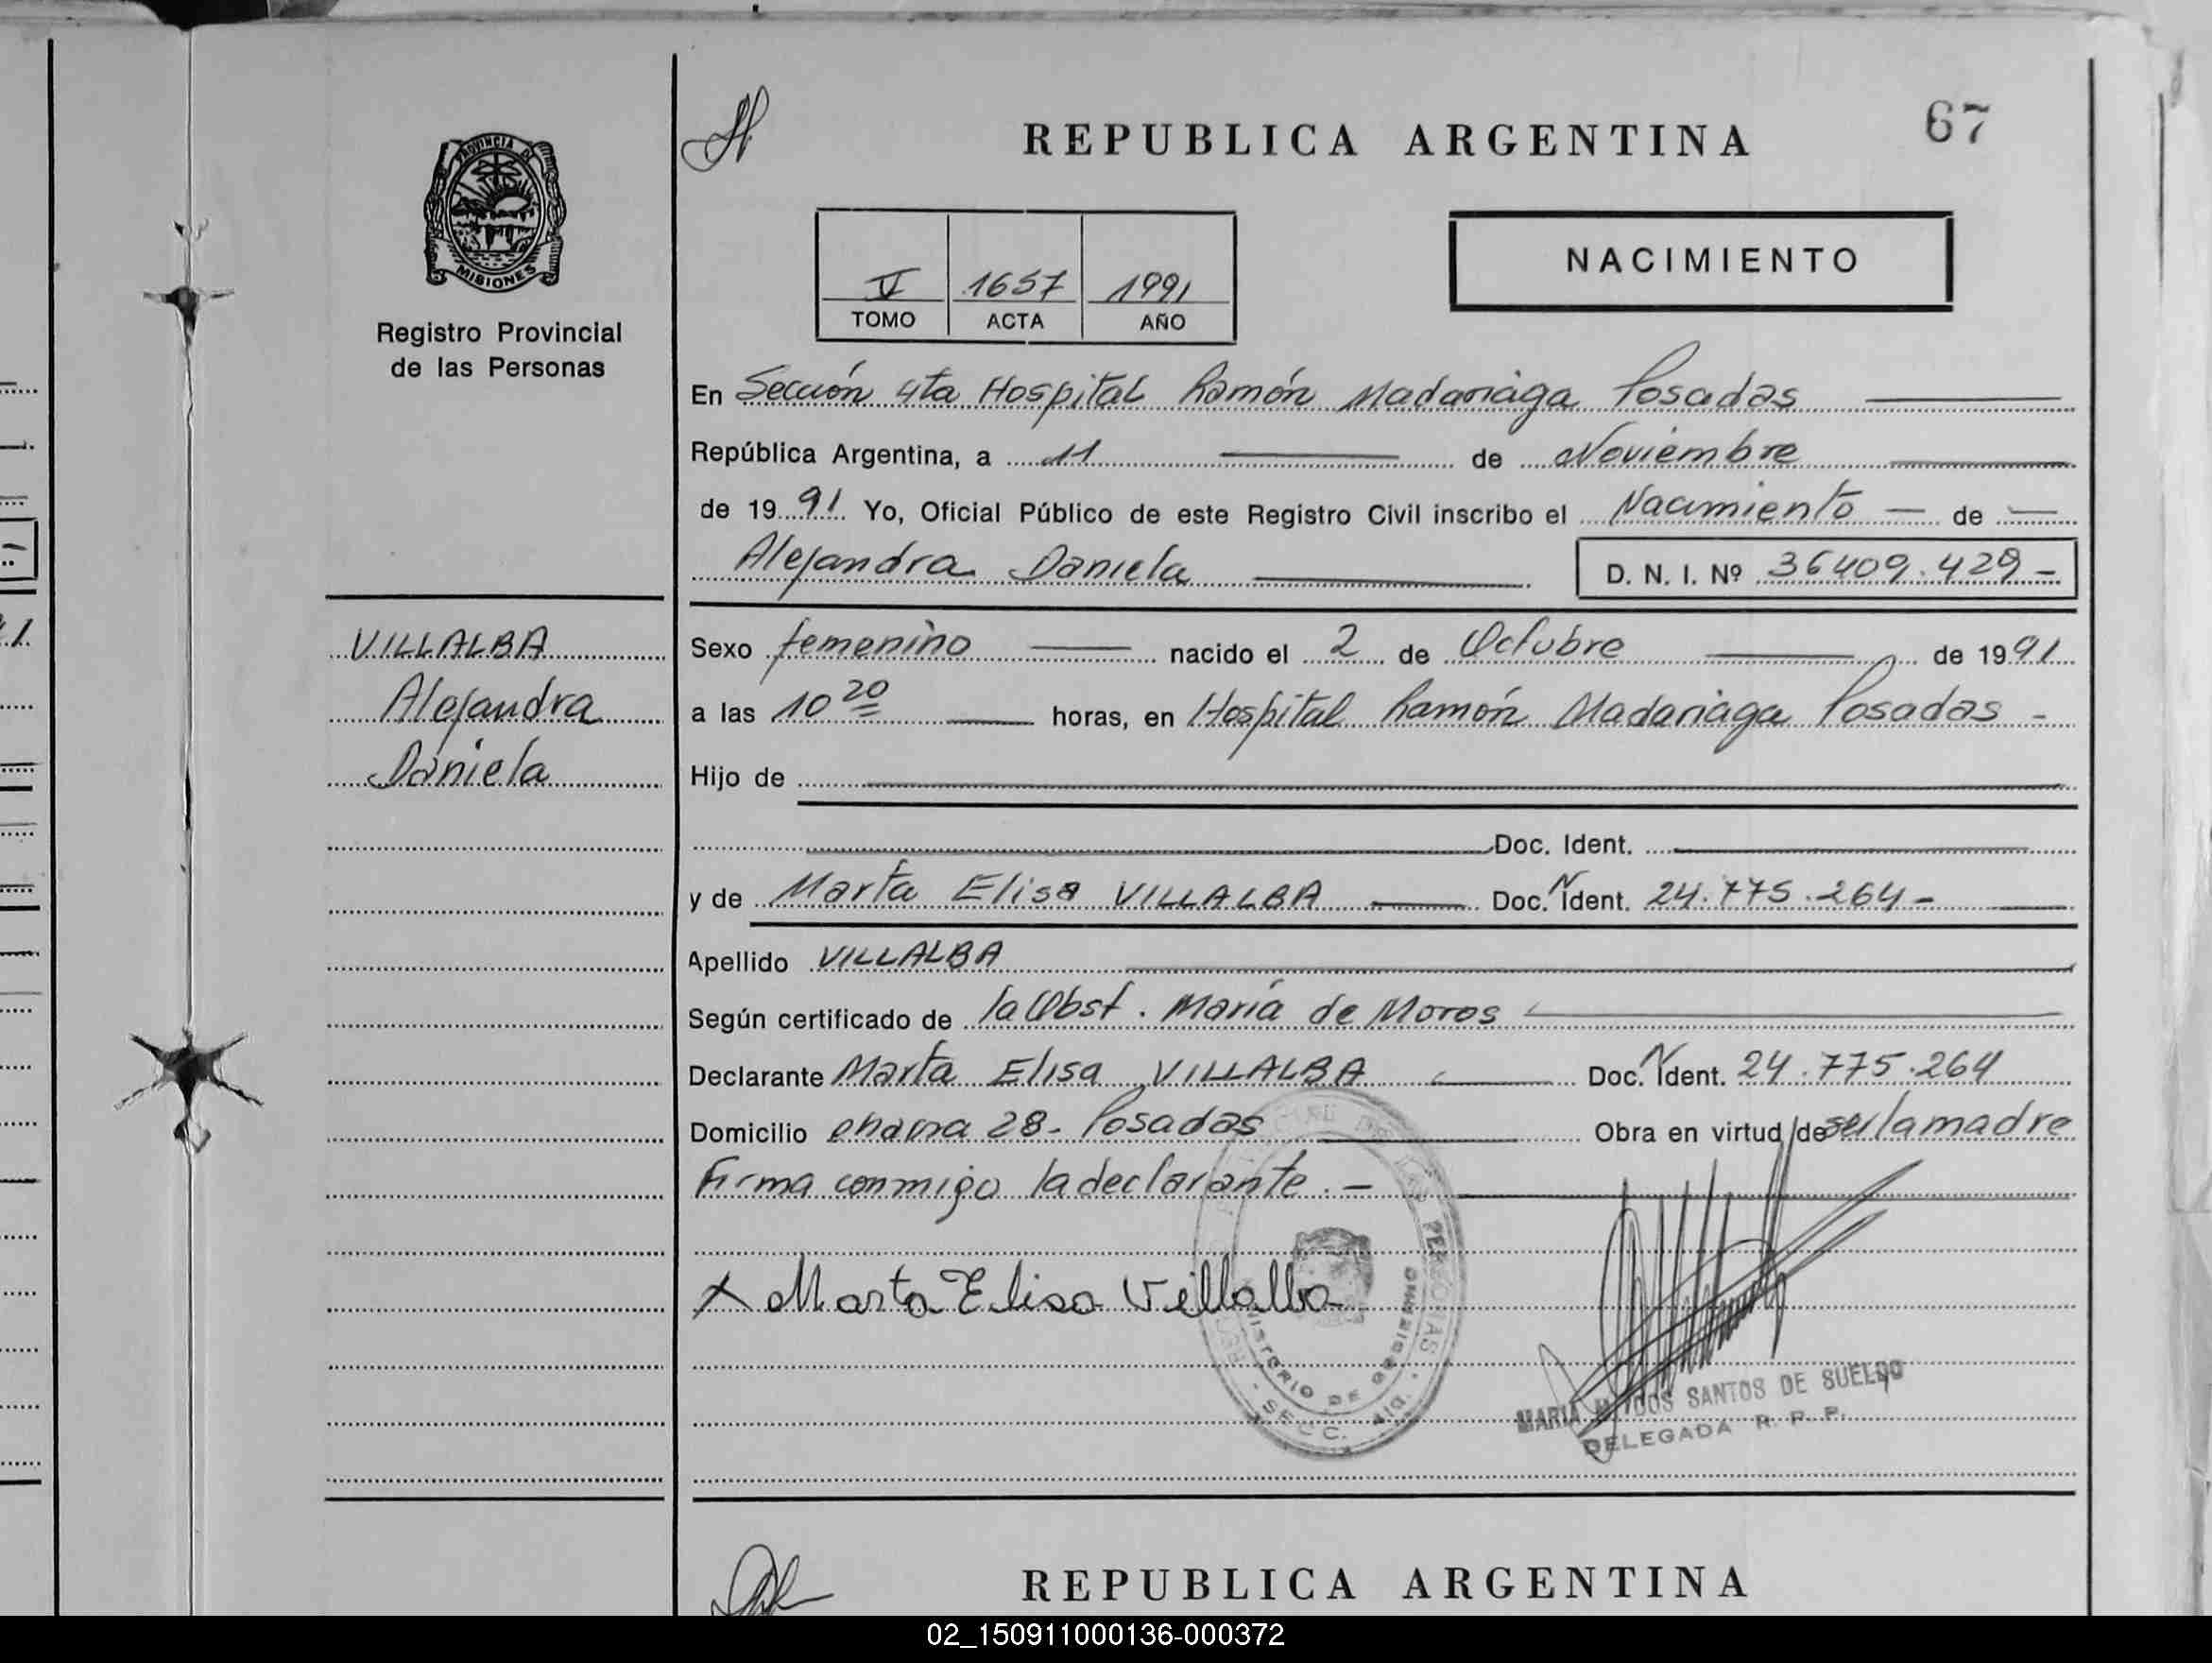 67
REPUBLICA ARGENTINA
PROVINCIA DE
MISIONES
Registro Provincial
de las Personas
V 1657 1991
TOMO ACTA AÑO
NACIMIENTO
En Sección 4ta Hospital Ramón Madariaga Posadas
República Argentina, a 11 de Noviembre
de 1991 Yo, Oficial Público de este Registro Civil inscribo el Nacimiento de
Alejandra Daniela D. N. I. Nº 36409.429-
VILLALBA
Alejandra
Daniela
Sexo femenino nacido el 2 de Octubre de 1991
a las 10 20 horas, en Hospital Ramón Madariaga Posadas -
Hijo de
Doc. Ident.
y de Marta Elisa VILLALBA Doc. N Ident. 24.775.264-
Apellido VILLALBA
Según certificado de la Obst. María de Moros
Declarante Marta Elisa VILLALBA Doc. N Ident. 24.775.264
Domicilio chacra 28- Posadas Obra en virtud de ser la madre
Firma conmigo la declarante.-
x Marta Elisa Villalba
DE LAS PERSONAS
MINISTERIO DE GOBIERNO
SECC.
MARIA DOS SANTOS DE SUELDO
DELEGADA R. P. P.
REPUBLICA ARGENTINA
02_150911000136-000372